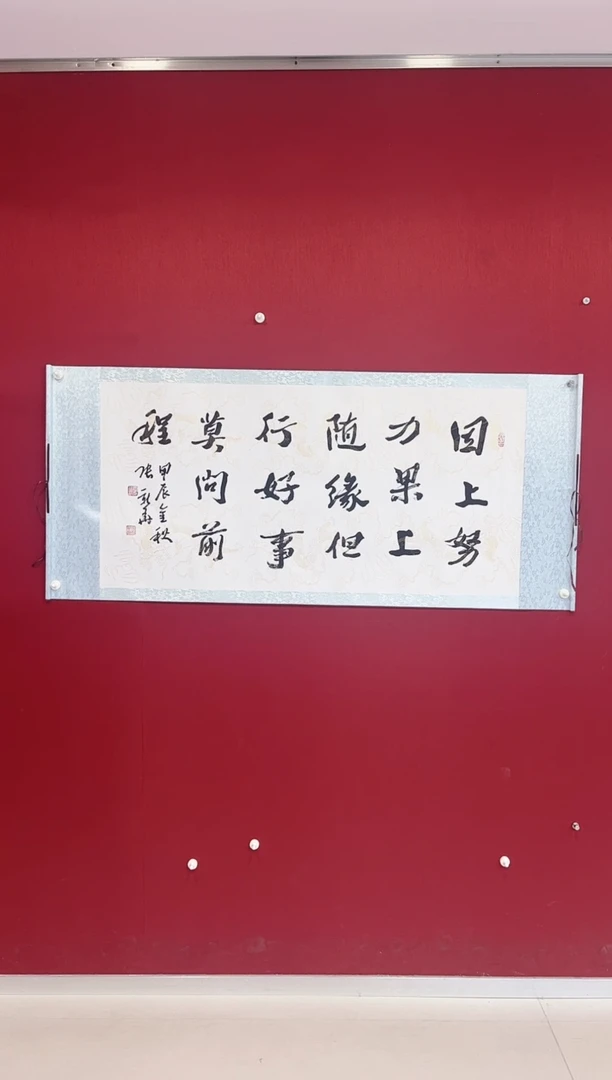 因上努
力果上
随缘但
行好事
莫问前
程
甲辰金秋